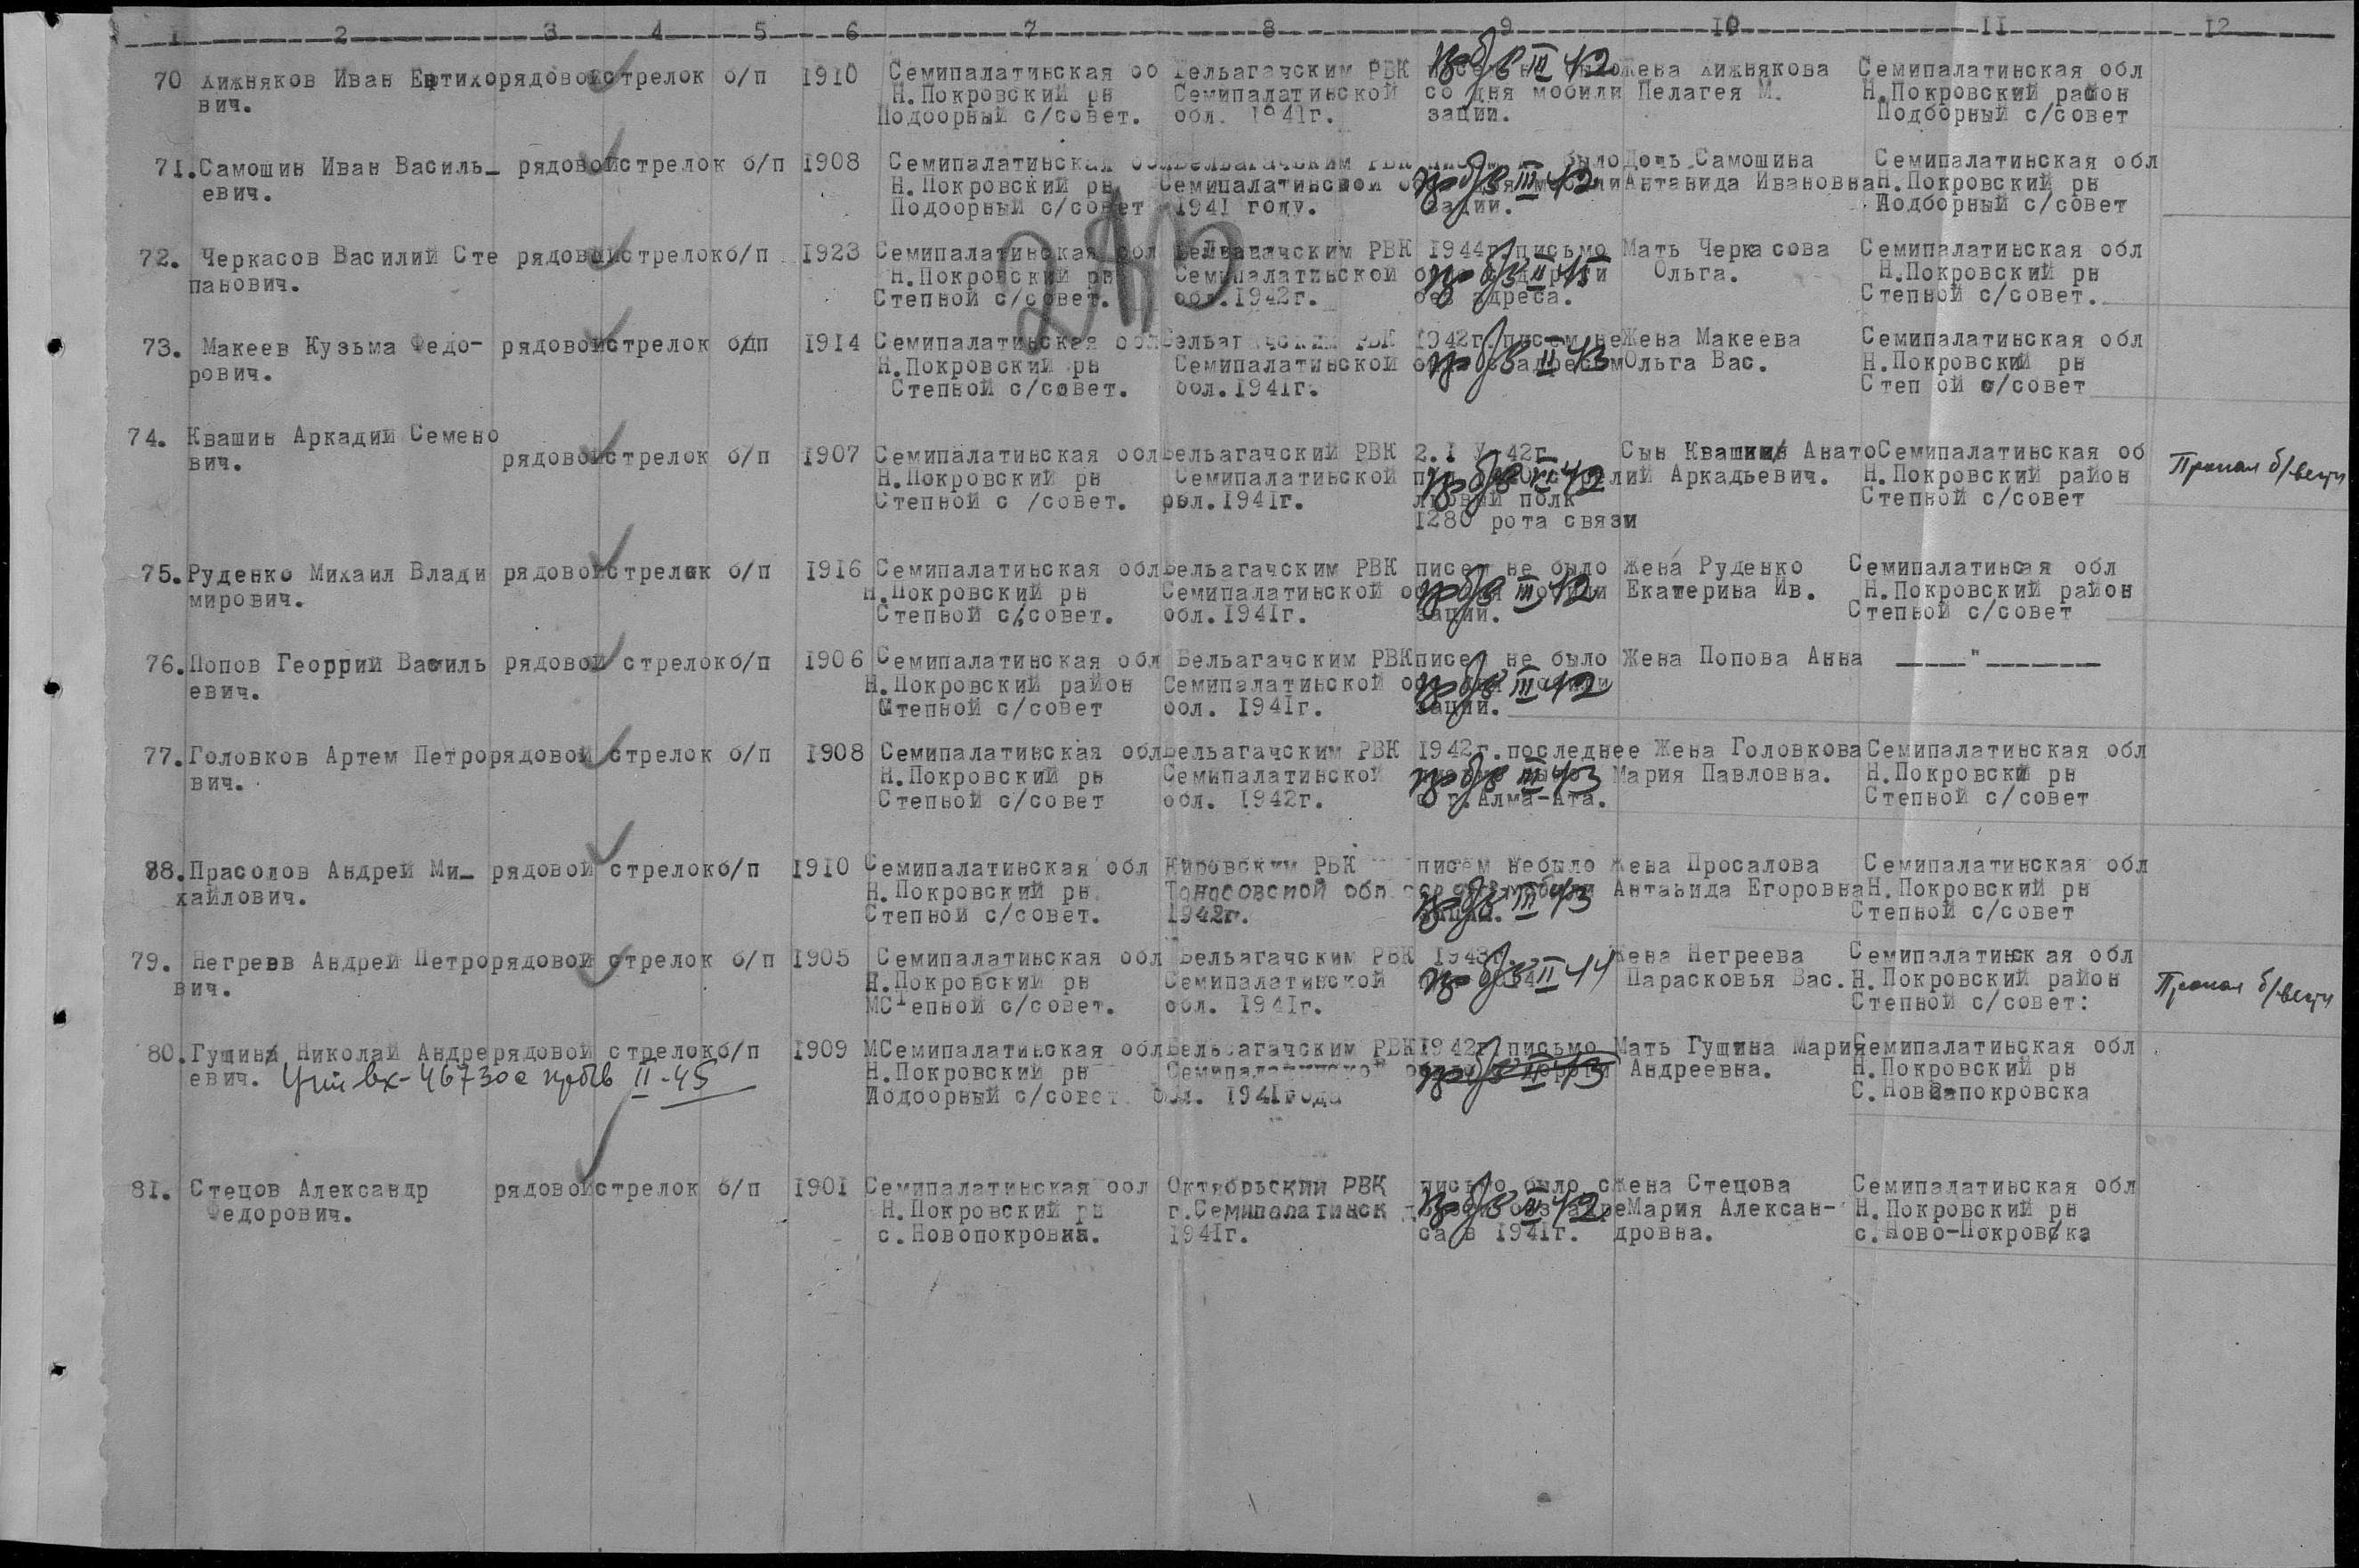 1 2 3 4 5 6 7 8 9 10 11 12
70 Хижняков Иван Евтихо рядовой стрелок б/п 1910 Семипалатинская об Бельагачским РВК Жена Хижнякова Семипалатинская обл
вич. Н.Покровский рн Семипалатинской со дня мобили Пелагея М. Н.Покровский район
Подборный с/совет. обл. 1941г. зации. Подборный с/совет
71. Самошин Иван Василь- рядовой стрелок б/п 1908 Семипалатинская обл Бельагачским РВК было Дочь Самошина Семипалатинская обл
евич. Н.Покровский рн Семипалатинской пр б/в III 42 Антанида Ивановна Н.Покровский рн
Подборный с/совет 1941 году. зации. Подборный с/совет
243
72. Черкасов Василий Сте рядовый стрелок б/п 1923 Семипалатинская обл Бельагачским РВК 1944г.письмо Мать Черкасова Семипалатинская обл
панович. Н.Покровский рн Семипалатинской пр б/в II 45 Ольга. Н.Покровский рн
Степной с/совет. обл.1942г. без адреса. Степной с/совет.
73. Макеев Кузьма Федо- рядовой стрелок б/п 1914 Семипалатинская обл Бельагачским РВК 1942г.писем не Жена Макеева Семипалатинская обл
рович. Н.Покровский рн Семипалатинской пр б/в II 43 Ольга Вас. Н.Покровский рн
Степной с/совет. обл.1941г. Степ ой с/совет
74. Квашин Аркадий Семено
вич. рядовой стрелок б/п 1907 Семипалатинская обл Бельагачский РВК 2.I У.42г. Сын Квашин Анато Семипалатинская об
Н.Покровский рн Семипалатинской пр б/в VI 42 лий Аркадьевич. Н.Покровский район Пропал б/вести
Степной с /совет. обл.1941г. лковый полк Степной с/совет
1280 рота связи
75. Руденко Михаил Влади рядовой стрелок б/п 1916 Семипалатинская обл Бельагачским РВК писем не было Жена Руденко Семипалатинсая обл
мирович. Н.Покровский рн Семипалатинской пр б/в III 42 Екатерина Ив. Н.Покровский район
Степной с/совет. обл.1941г. зации. Степной с/совет
76. Попов Георрий Василь рядовой стрелок б/п 1906 Семипалатинская обл Бельагачским РВК писем не было Жена Попова Анна -----"-------
евич. Н.Покровский район Семипалатинской пр б/в III 42
Степной с/совет обл. 1941г. зации.
77. Головков Артем Петро рядовой стрелок б/п 1908 Семипалатинская обл Бельагачским РВК 1942г.последнее Жена Головкова Семипалатинская обл
вич. Н.Покровский рн Семипалатинской пр б/в III 43 Мария Павловна. Н.Покровский рн
Степной с/совет обл. 1942г. с г.Алма-Ата. Степной с/совет
88. Прасолов Андрей Ми- рядовой стрелок б/п 1910 Семипалатинская обл Кировским РВК писем небыло Жена Просалова Семипалатинская обл
хайлович. Н.Покровский рн обл пр б/в III 43 Антанида Егоровна Н.Покровский рн
Степной с/совет. 1942г. Степной с/совет
79. Негреев Андрей Петро рядовой стрелок б/п 1905 Семипалатинская обл Бельагачским РВК 1943г. Жена Негреева Семипалатинск ая обл
вич. Н.Покровский рн Семипалатинской пр б/в II 44 Парасковья Вас. Н.Покровский район Пропал б/вести
МСтепной с/совет. обл. 1941г. Степной с/совет:
80. Гущин Николай Андре рядовой стрелок б/п 1909 МСемипалатинская обл Бельагачским РВК 1942г.письмо Мать Гущина Мария Семипалатинская обл
евич. вх-46730с пр б/в II-45 Н.Покровский рн Семипалатинской пр б/в III 43 Андреевна. Н.Покровский рн
Подборный с/совет. обл. 1941года С. Новапокровска
81. Стецов Александр рядовой стрелок б/п 1901 Семипалатинская обл Октябрьский РВК письмо было с Жена Стецова Семипалатинская обл
Федорович. Н.Покровский рн г.Семипалатинск пр б/в III 42 Мария Алексан- Н.Покровский рн
с.Новопокровка. 1941г. са в 1941г. дровна. с.Ново-Покровка